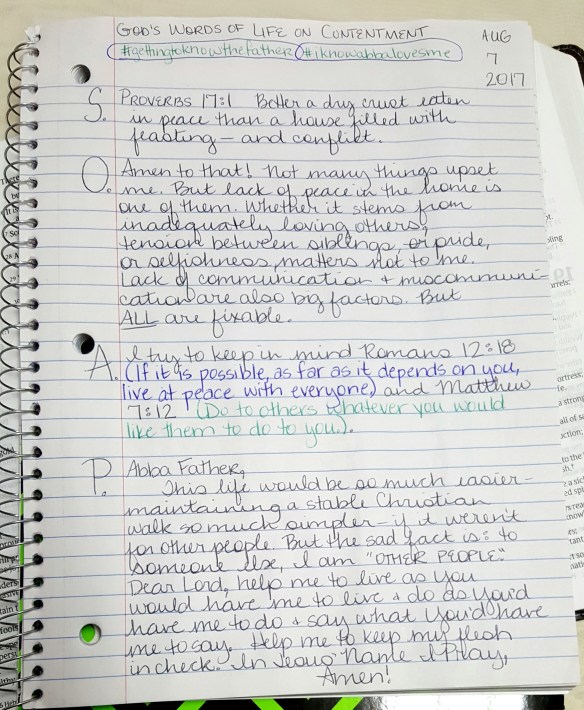 GOD'S WORDS OF LIFE ON CONTENTMENT
#gettingtoknowthefather #iknowabbalovesme
AUG
7
2017
S. PROVERBS 17:1 Better a dry crust eaten
in peace than a house filled with
feasting — and conflict.
O. Amen to that! Not many things upset
me. But lack of peace in the home is
one of them. Whether it stems from
inadequately loving others,
tension between siblings, or pride,
or selfishness, matters not to me.
Lack of communication + miscommuni-
cation are also big factors. But
ALL are fixable.
A. I try to keep in mind Romans 12:18
(If it is possible, as far as it depends on you,
live at peace with everyone) and Matthew
7:12 (Do to others whatever you would
like them to do to you.).
P. Abba Father,
This life would be so much easier –
maintaining a stable Christian
walk so much simpler – if it weren't
for other people. But the sad fact is: to
someone else, I am "OTHER PEOPLE."
Dear Lord, help me to live as You
would have me to live + do as You'd
have me to do + say what You'd have
me to say. Help me to keep my flesh
in check. In Jesus' Name I Pray,
Amen!